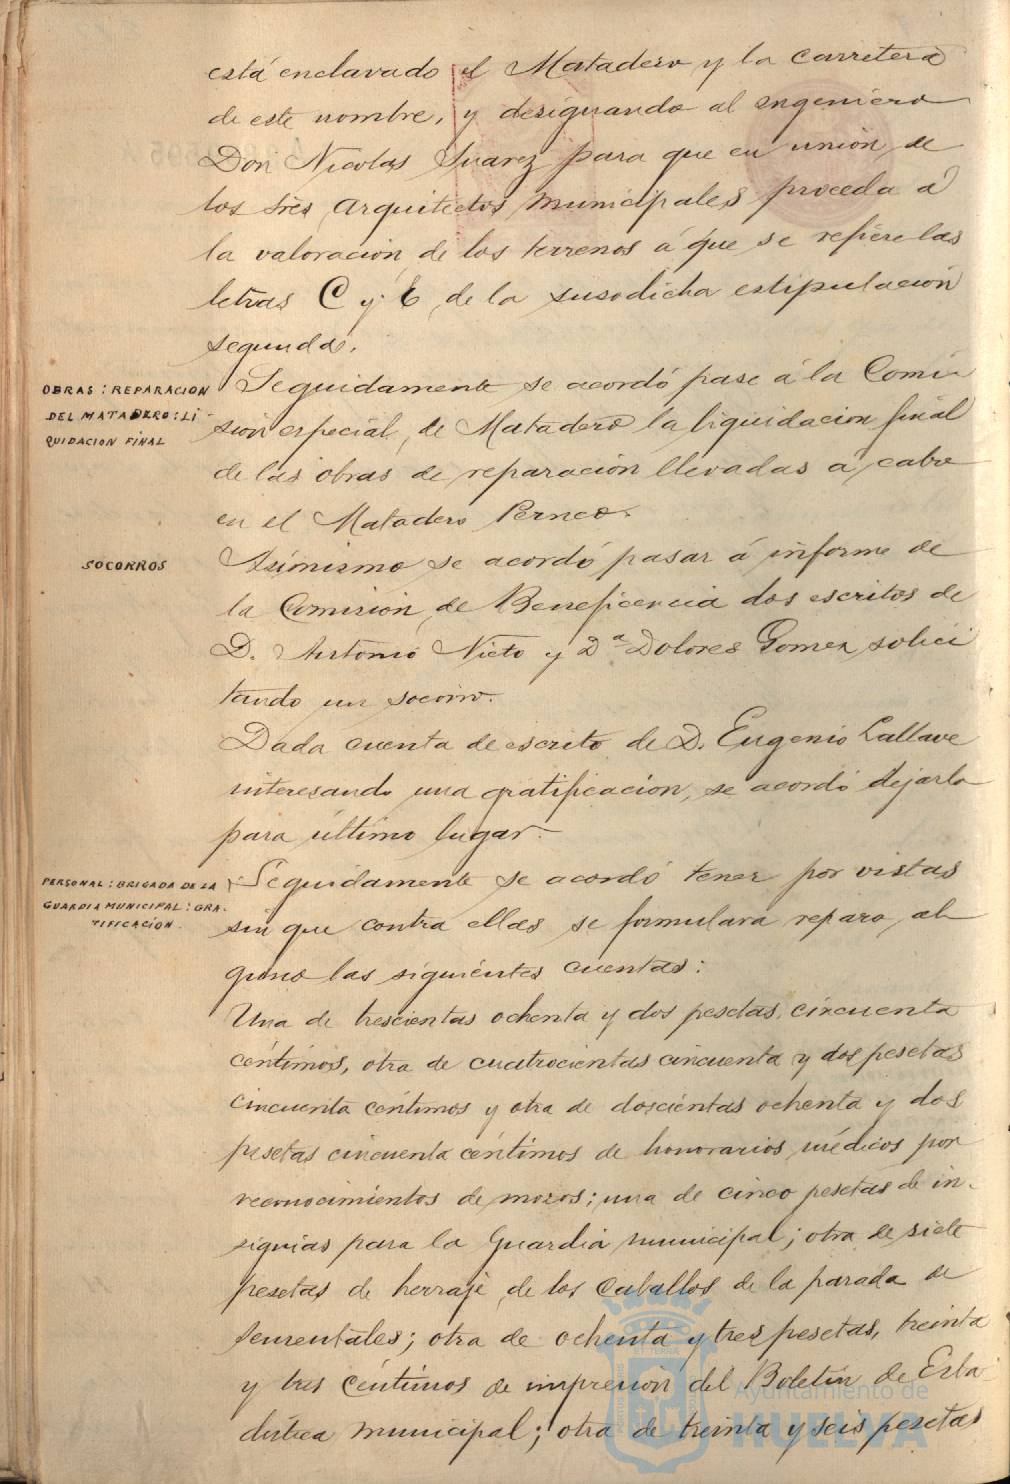 está enclavado el Matadero y la carretera
de este nombre, y designando al ingeniero
Don Nicolas Suarez para que en unión de
los tres arquitectos municipales proceda á
la valoración de los terrenos á que se refiere las
letras C y E de la susodicha estipulación
segunda.
OBRAS: REPARACION
DEL MATADERO: LI-
QUIDACION FINAL
Seguidamente se acordó pase á la Comi-
sión especial de Matadero la liquidación final
de las obras de reparación llevadas a cabo
en el Matadero Perneo.
SOCORROS
Asimismo se acordó pasar á informe de
la Comisión de Beneficencia dos escritos de
D. Antonio Nieto y Dª Dolores Gomez solici
tando un socorro.
Dada cuenta de escrito de D. Eugenio Lallave
interesando una gratificación, se acordó dejarlo
para último lugar.
PERSONAL: BRIGADA DE LA
GUARDIA MUNICIPAL: GRA-
TIFICACIÓN.
Seguidamente se acordó tener por vistas
sin que contra ellas se formulara reparo al
guno las siguientes cuentas:
Una de trescientas ochenta y dos pesetas cincuenta
céntimos, otra de cuatrocientas cincuenta y dos pesetas
cincuenta céntimos y otra de doscientas ochenta y dos
pesetas cincuenta céntimos de honorarios médicos por
reconocimientos de mozos; una de cinco pesetas de in-
signias para la Guardia municipal; otra de siete
pesetas de herraje de los caballos de la parada de
sementales; otra de ochenta y tres pesetas, treinta
y tres céntimos de impresión del Boletín de Esta
dística municipal; otra de treinta y seis pesetas
Ayuntamiento de
HUELVA